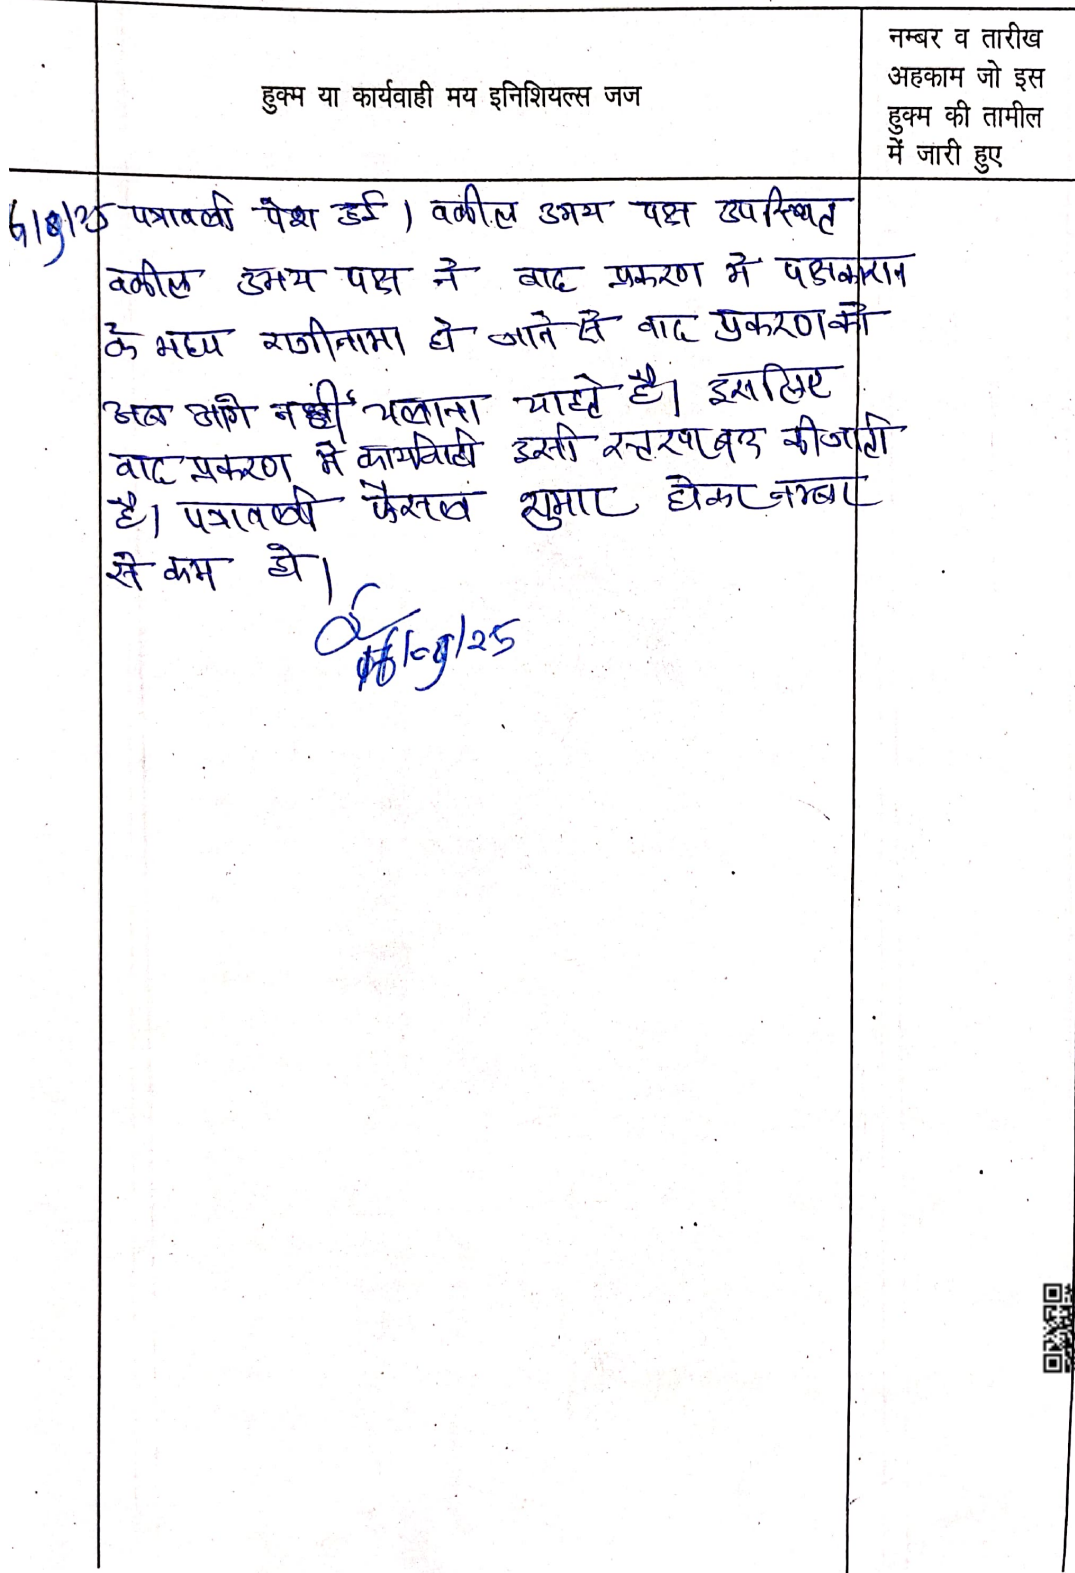 हुक्म या कार्यवाही मय इनिशियल्स जज
नम्बर व तारीख
अहकाम जो इस
हुक्म की तामील
में जारी हुए
6/9/25 पत्रावली पेश हुई। वकील उभय पक्ष उपस्थित
वकील उभय पक्ष ने वाद प्रकरण में पक्षकारान
के मध्य राजीनामा हो जाने से वाद प्रकरण को
अब आगे नहीं चलाना चाहते है। इसलिए
वाद प्रकरण में कार्यवाही इसी स्तर पर बन्द की जाती
है। पत्रावली फैसल शुमार होकर नम्बर
से कम हो।